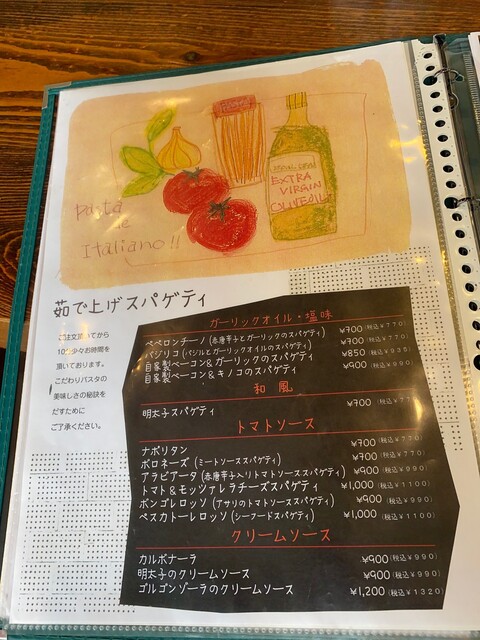 Pasta
de
Italiano!!
EXTRA
VIRGIN
OLIVEOIL
茹で上げスパゲティ
ご注文頂いてから
10分少々お時間を
頂いております。
こだわりパスタの
美味しさの秘訣を
だすために
ご了承ください。
ガーリックオイル・塩味
ペペロンチーノ(赤唐辛子とガーリックのスパゲティ) ¥700(税込¥770)
バジリコ(バジルとガーリックオイルのスパゲティ) ¥700(税込¥770)
自家製ベーコン&ガーリックのスパゲティ ¥850(税込¥935)
自家製ベーコン&キノコのスパゲティ ¥900(税込¥990)
和風
明太子スパゲティ ¥700(税込¥770)
トマトソース
ナポリタン ¥700(税込¥770)
ボロネーズ(ミートソーススパゲティ) ¥700(税込¥770)
アラビアータ(赤唐辛子入りトマトソーススパゲティ) ¥900(税込¥990)
トマト&モッツァレラチーズスパゲティ ¥1,000(税込¥1100)
ボンゴレロッソ(アサリのトマトソーススパゲティ) ¥900(税込¥990)
ペスカトーレロッソ(シーフードスパゲティ) ¥1,000(税込¥1100)
クリームソース
カルボナーラ ¥900(税込¥990)
明太子のクリームソース ¥900(税込¥990)
ゴルゴンゾーラのクリームソース ¥1,200(税込¥1320)